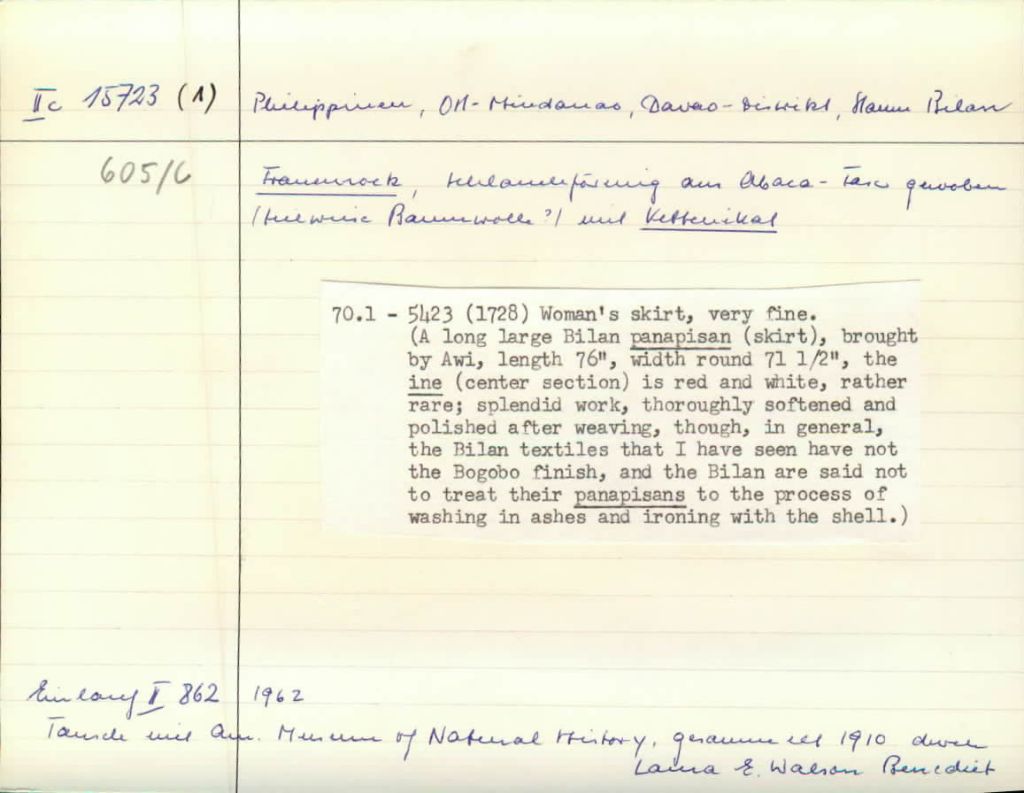 IIc 15723 (1) Philippinen, Ost-Mindanao, Davao-Distrikt, Stamm Bilan
605/6 Frauenrock, schlauchförmig aus Abaca-Faser gewoben
(teilweise Baumwolle?) mit Kettenikat
70.1 - 5423 (1728) Woman's skirt, very fine.
(A long large Bilan panapisan (skirt), brought
by Awi, length 76", width round 71 1/2", the
ine (center section) is red and white, rather
rare; splendid work, thoroughly softened and
polished after weaving, though, in general,
the Bilan textiles that I have seen have not
the Bogobo finish, and the Bilan are said not
to treat their panapisans to the process of
washing in ashes and ironing with the shell.)
Einlauf II 862 1962
Tausch mit Am. Museum of Natural History, gesammelt 1910 durch
Laura E. Watson Benedict